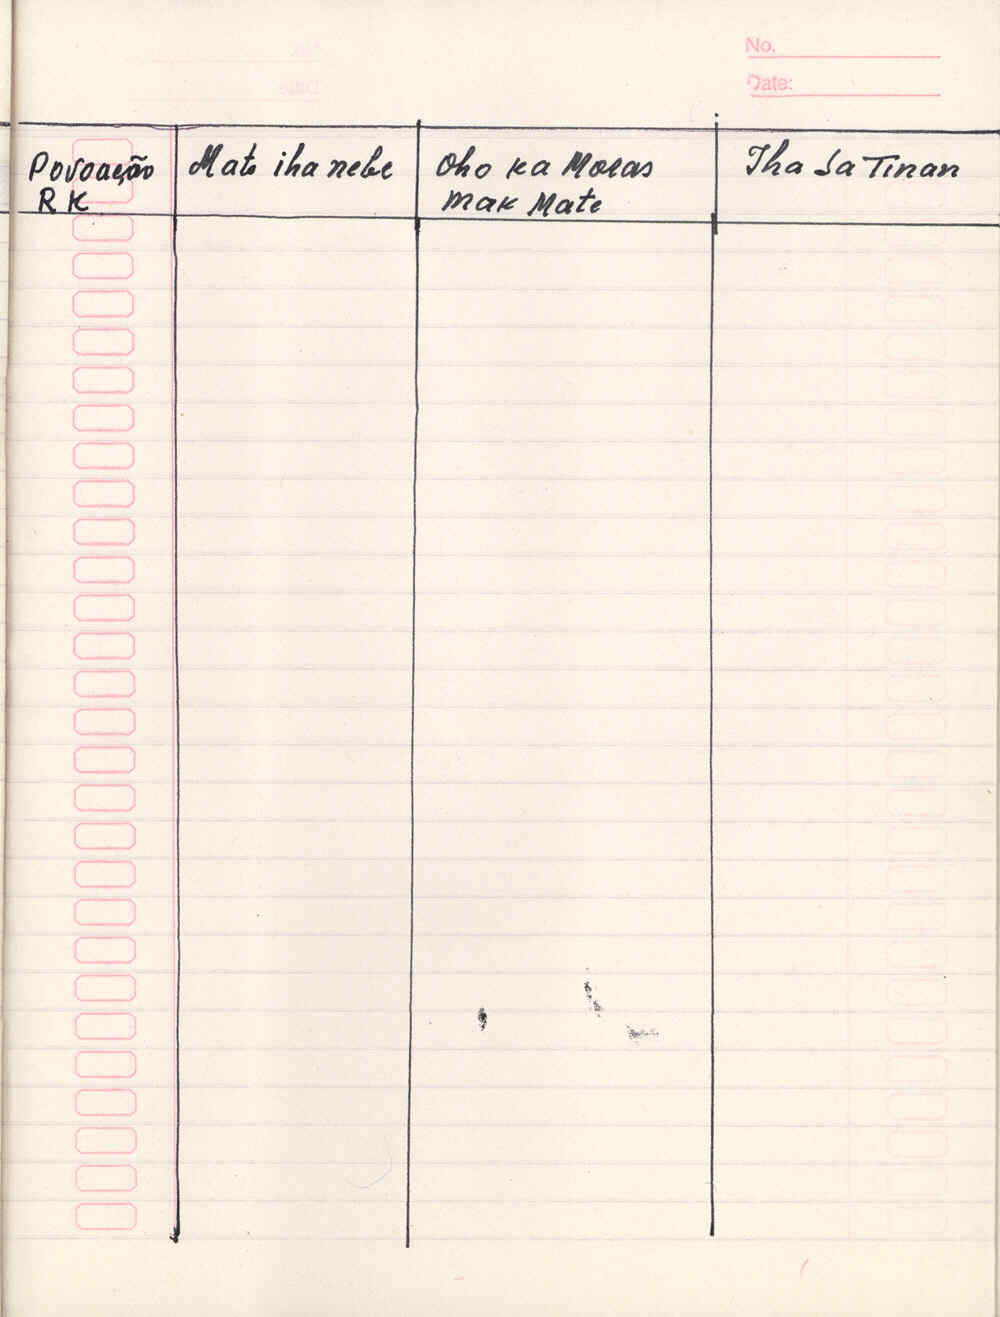 No.
Date:
Povoação
R K
Mate iha nebe
Oho ka Moras
mak Mate
Iha sa Tinan